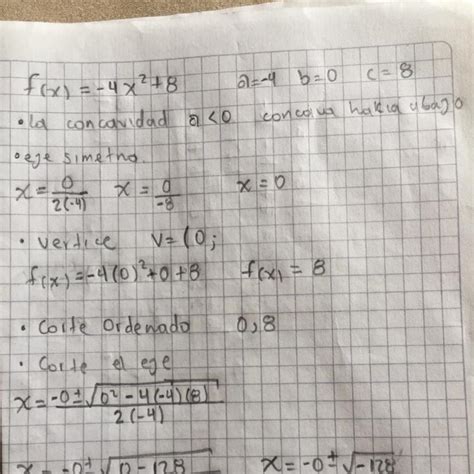 f(x) = -4x²+8 a=-4 b=0 c=8
• la concavidad a<0 concava hakia abajo
• eje simetria.
x = 0/2(-4) x = 0/-8 x=0
• vertice v=(0;
f(x)=-4(0)²+0+8 f(x) = 8
• Corte Ordenado 0,8
• Corte el eje
x = -0±√0²-4(-4)(8)/2(-4)
x = -0±√0-128 x = -0±√-128